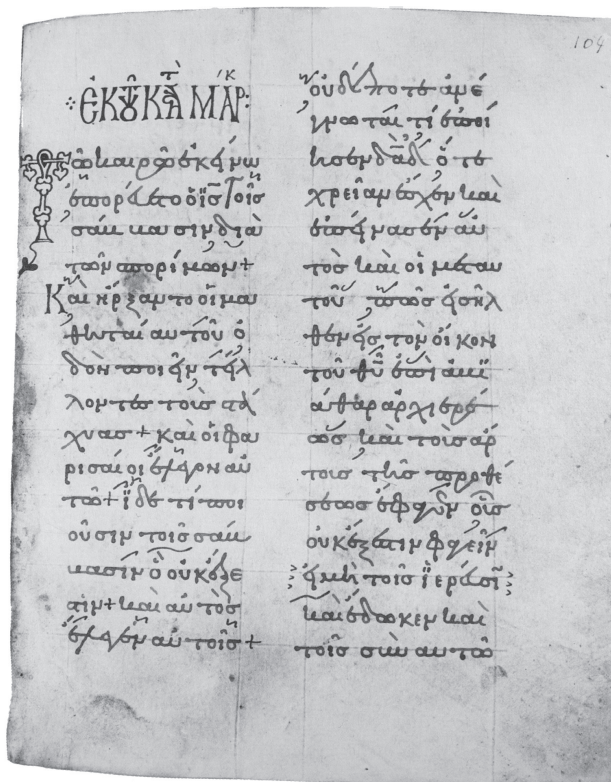 ἐκ τοῦ κατὰ Μάρ
Τῶ καιρῶ ἐκείνω
ἐπορεύετο ὁ ις τοῖς
σάββασιν διὰ
τῶν σπορίμων +
Καὶ ἤρξαντο οἱ μα
θηταὶ αὐτοῦ ὁ
δὸν ποιεῖν τίλ
λοντες τοὺς στά
χυας + καὶ οἱ φα
ρισαῖοι ἔλεγον αὐ
τῶ + ἴδε τί ποι
οῦσιν τοῖς σάβ
βασιν ὃ οὐκ ἔξε
στιν + καὶ αὐτὸς
ἔλεγεν αὐτοῖς +
104
οὐδέποτε ἀνέ
γνωται τί ἐποί
ησεν δαδ ὅτε
χρείαν ἔσχεν καὶ
ἐπείνασεν αὐ
τὸς καὶ οἱ μετ αυ
τοῦ πῶς εἰσῆλ
θεν εἰς τὸν οἶκον
τοῦ θυ ἐπὶ ἀβι
άθαρ ἀρχιερέ
ως καὶ τοὺς ἄρ
τους τῆς προθέ
σεως ἔφαγεν οὓς
οὐκ ἔξεστιν φαγεῖν
εἰ μὴ τοῖς ἱερεῦσι
καὶ ἔδωκεν καὶ
τοῖς σὺν αὐτῶ